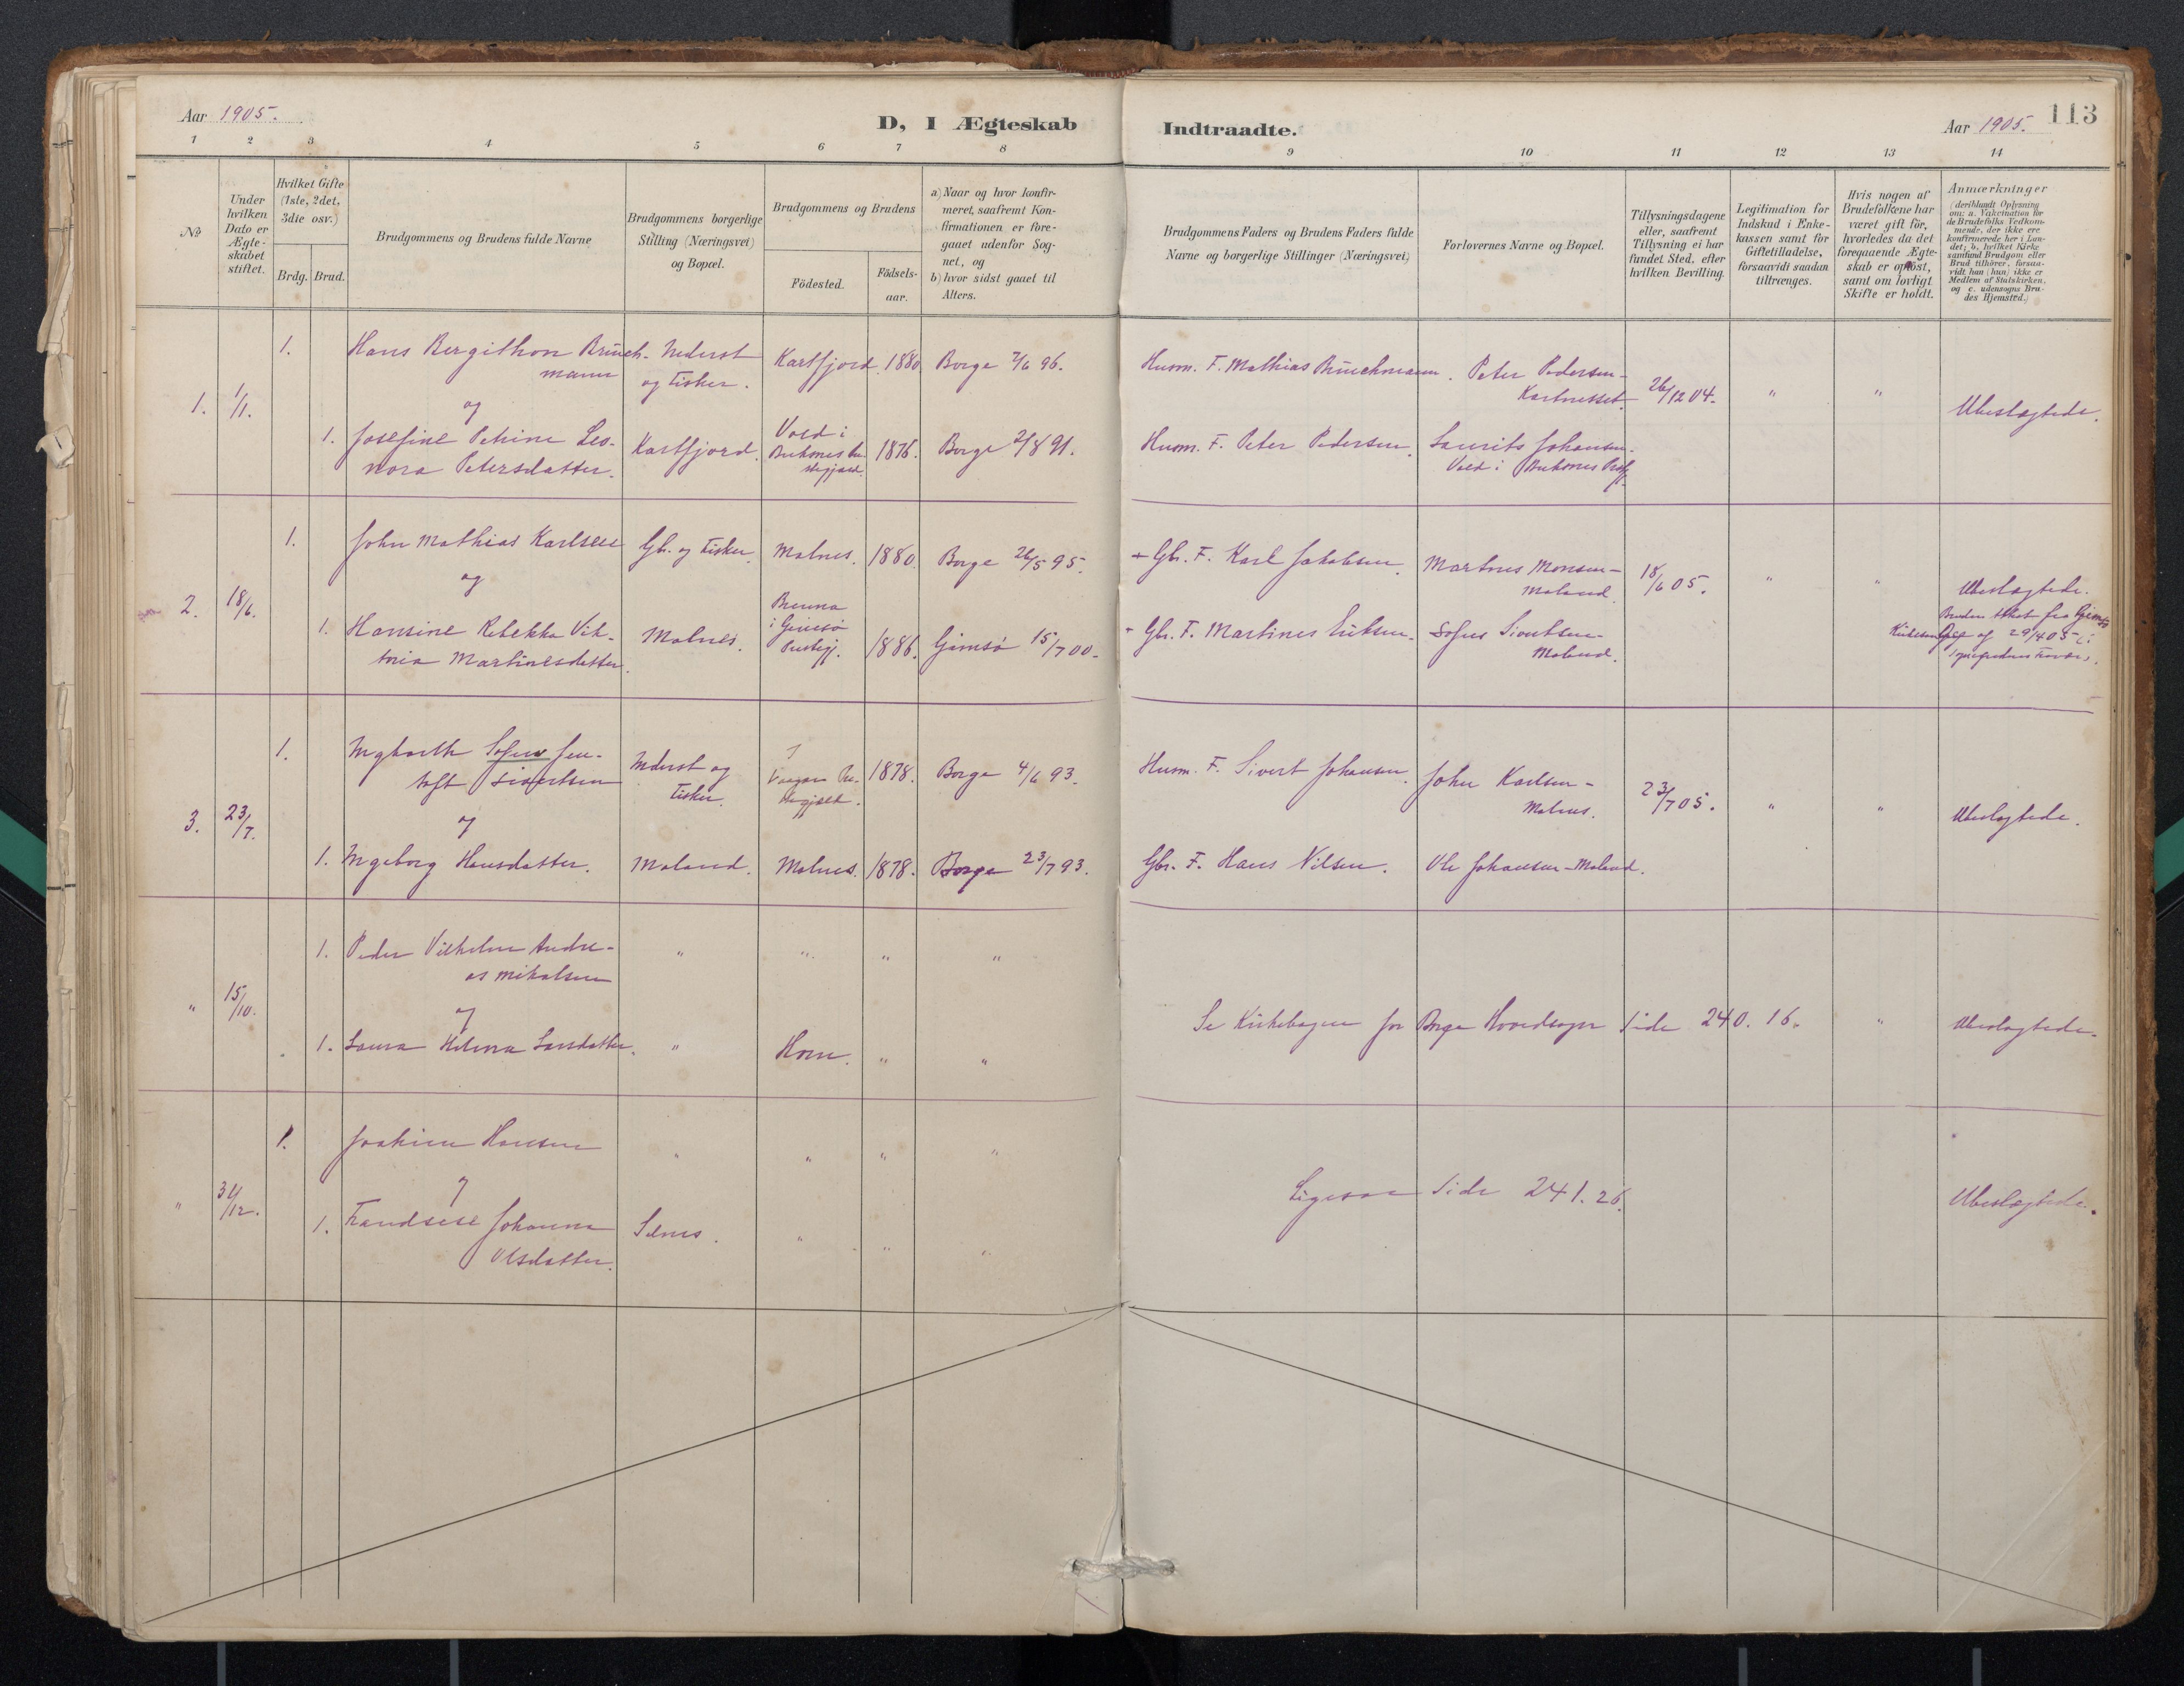 Aar 1905.
D, I Ægteskab
Indtraadte.
Aar 1905.
113
1 2 3 4 5 6 7 8
9 10 11 12 13 14
No
Under hvilken Dato er Ægte-skabet stiftet.
Hvilket Gifte (1ste, 2det, 3die osv.)
Brdg. Brud.
Brudgommens og Brudens fulde Navne
Brudgommens borgerlige Stilling (Næringsvei) og Bopæl.
Brudgommens og Brudens
Födested.
Födsels-aar.
a) Naar og hvor konfir-
meret, saafremt Kon-
firmationen er fore-
gaaet udenfor Sog-
net, og
b) hvor sidst gaaet til
Alters.
Brudgommens Faders og Brudens Faders fulde
Navne og borgerlige Stillinger (Næringsvei)
Forlovernes Navne og Bopæl.
Tillysningsdagene
eller, saafremt
Tillysning ei har
fundet Sted, efter
hvilken Bevilling.
Legitimation for
Indskud i Enke-
kassen samt for
Giftetilladelse,
forsaavidt saadan
tiltrænges.
Hvis nogen af
Brudefolkene har
været gift för,
hvorledes da det
foregaaende Ægte-
skab er oplöst,
samt om lovligt
Skifte er holdt.
Anmærkninger
(deriblandt Oplysning
om: a. Vakcination for
de Brudefolks Vedkom-
mende, der ikke ere
konfirmerede her i Lan-
det; b. hvilket Kirke
samfund Brudgom eller
Brud tilhörer, forsaa-
vidt han (hun) ikke er
Medlem af Statskirken,
og c. udensogns Bru-
des Hjemsted.)
1. 1/1.
1. Hans Bergithon Brüch-
mann
Inderst
og Fisker.
Kartfjord. 1880 Borge 7/6 96.
Husm. F. Mathias Brüchmann.
Peter Pedersen-
Kartnesset.
26/12 04. " "
Ubeslægtede.
og
1. Josefine Petrine Leo-
nora Petersdatter.
Kartfjord.
Vold i
Buksnes Pre-
stegjæld.
1876. Borge 2/8 91.
Husm. F. Peter Pedersen.
Laurits Johansen-
Vold i Buksnes
2. 18/6.
1. John Mathias Karlsen
Gbr. og Fisker. Malnes. 1880. Borge 26/5 95.
+ Gbr. F. Karl Jakobsen.
Martines Monsen-
Moland.
18/6 05. " "
Ubeslægtede.
Bruden løst fra Gimsø
af 29/4 05
og
1. Hansine Rebekka Vik-
toria Martinesdatter.
Malnes.
Brenna
i Gimsø
Prestegj.
1886. Gimsø 15/7 00.
+ Gbr. F. Martines Eriksen.
Sofus Sivertsen-
Moland.
3. 23/7.
1. Ingbarth Sofus Jen-
toft Sivertsen
Inderst og
Fisker.
Vaagan Pre-
stegjæld.
1878. Borge 4/6 93.
Husm. F. Sivert Johansen.
John Karlsen-
Malnes.
23/7 05. " "
Ubeslægtede.
og
1. Ingeborg Hansdatter. Moland. Malnes. 1878. Borge 23/7 93.
Gbr. F. Hans Nilsen. Ole Johansen-Moland.
" 15/10.
1. Peder Vilhelm Andre-
as Mikalsen
" " " "
og
Se Kirkebogen for Borge Hovedsogn Side 240. 16. " Ubeslægtede.
1. Laura Helena Larsdatter. " Horn. " "
" 31/12.
1. Joakim Hansen " " " "
og
Ligesaa Side 241. 26.
Ubeslægtede.
1. Frandsese Johanna
Olsdatter.
Selnes. " " "